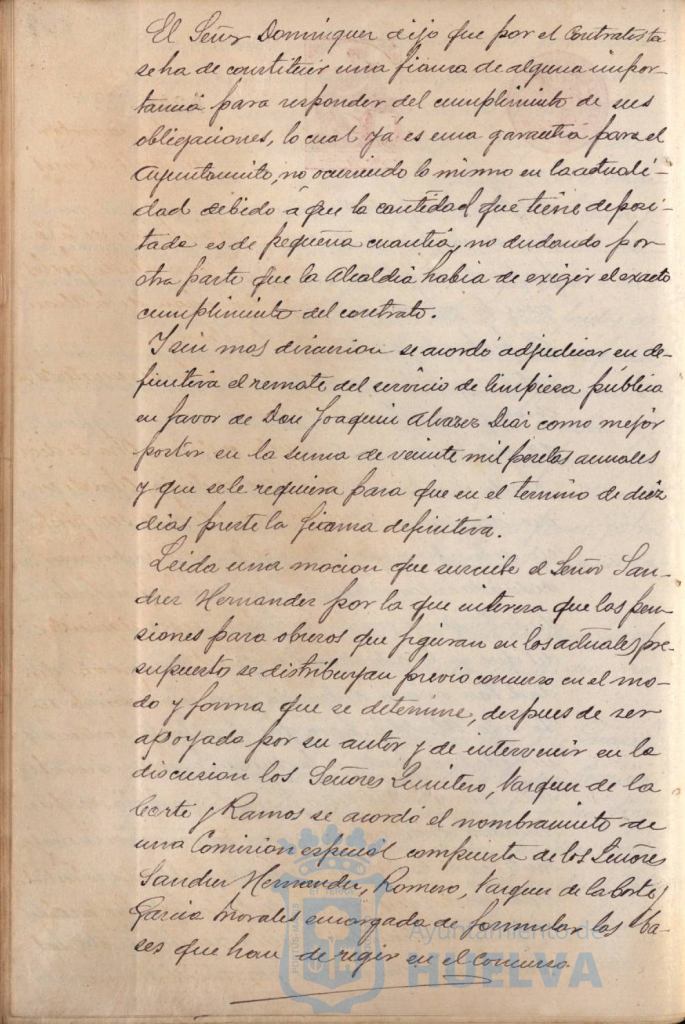 El Señor Dominguez dijo que por el Contratista
se ha de constituir una fianza de alguna impor-
tancia para responder del cumplimiento de sus
obligaciones, lo cual yá es una garantia para el
Ayuntamiento, no ocurriendo lo mismo en la actuali-
dad debido á que la cantidad que tiene deposi-
tada es de pequeña cuantia, no dudando por
otra parte que la Alcaldia habia de exigir el exacto
cumplimiento del contrato.
Y sin mas discusion se acordó adjudicar en de-
finitiva el remate del servicio de limpieza pública
en favor de Don Joaquin Alvarez Diaz como mejor
postor en la suma de veinte mil pesetas anuales
y que se le requiera para que en el termino de diez
dias preste la fianza definitiva.
Leida una mocion que suscribe el Señor San-
chez Hernandez por la que interesa que las pen-
siones para obreros que figuran en los actuales pre-
supuestos se distribuyan previo concurso en el mo-
do y forma que se determine, despues de ser
apoyada por su autor y de intervenir en la
discusion los Señores Quintero, Vazquez de la
Corte y Ramos se acordó el nombramiento de
una Comision especial compuesta de los Señores
Sanchez Hernandez, Romero, Vazquez de la Corte y
Garcia Morales encargada de formular las ba-
ses que han de regir en el concurso.
Ayuntamiento de
HUELVA